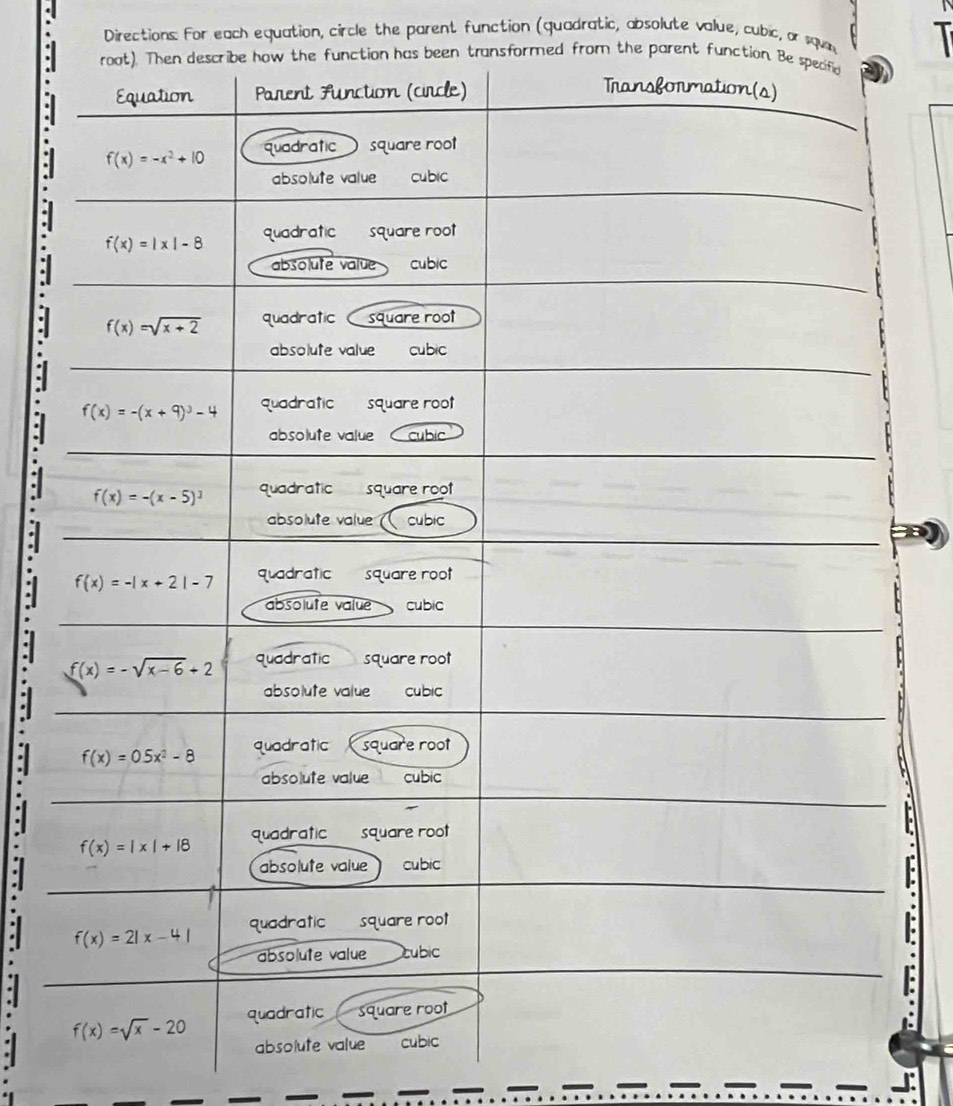 Directions: For each equation, circle the parent function (quadratic, absolute value, cubic, or square
root). Then describe how the function has been transformed from the parent function. Be specific!
Equation Parent Function (circle) Transformation(s)
f(x) = -x² + 10 quadratic square root
absolute value cubic
f(x) = |x| - 8 quadratic square root
absolute value cubic
f(x) = √x + 2 quadratic square root
absolute value cubic
f(x) = -(x + 9)³ - 4 quadratic square root
absolute value cubic
f(x) = -(x - 5)³ quadratic square root
absolute value cubic
f(x) = -|x + 2| - 7 quadratic square root
absolute value cubic
f(x) = -√x - 6 + 2 quadratic square root
absolute value cubic
f(x) = 0.5x² - 8 quadratic square root
absolute value cubic
f(x) = |x| + 18 quadratic square root
absolute value cubic
f(x) = 2|x - 4| quadratic square root
absolute value cubic
f(x) = √x - 20 quadratic square root
absolute value cubic